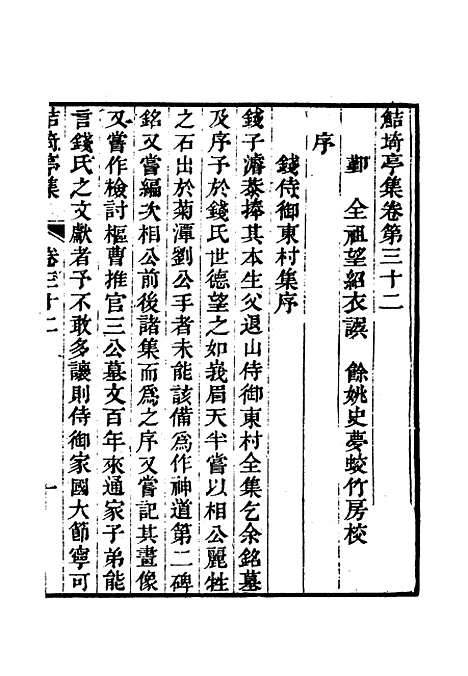 鮚埼亭集卷第三十二
鄞 全祖望紹衣譔 餘姚史夢蛟竹房校
序
錢侍御東村集序
錢子濬恭捧其本生父退山侍御東村全集乞余銘墓
及序予於錢氏世德望之如峩眉天半嘗以相公麗牲
之石出於菊潭劉公手者未能該備爲作神道第二碑
銘又嘗編次相公前後諸集而爲之序又嘗記其畫像
又嘗作檢討樞曹推官三公墓文百年來通家子弟能
言錢氏之文獻者予不敢多讓則侍御家國大節寧可
鮚埼亭集 卷三十二 一